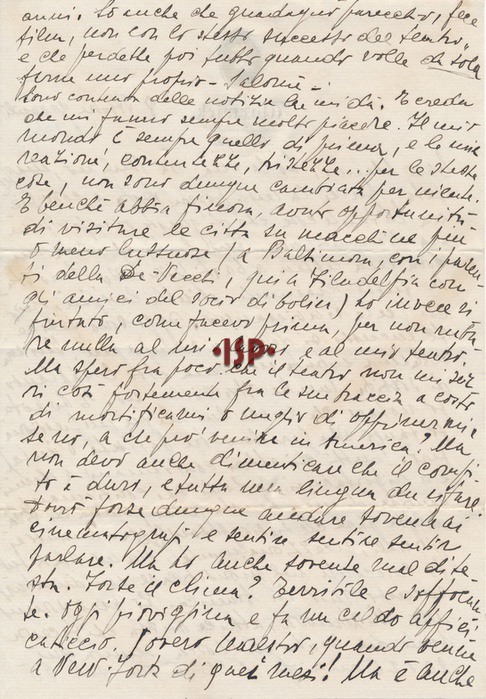 anni. So anche che guadagnò parecchio, fece
film, non con lo stesso successo del teatro,
e che perdette poi tutto quando volle da sola
farne uno proprio - Salomé -.
Sono contenta delle notizie che mi dà. E creda
che mi fanno sempre molto piacere. Il mio
mondo è sempre quello di prima, e le mie
reazioni, contentezze, tristezze... per le stesse
cose, non sono dunque cambiata per niente.
E benchè abbia finora, avuto opportunità
di visitare le città su macchine più
o meno lussuose (a Baltimora, con i paren-
ti della De Vecchi, qui a Filadelfia con
gli amici del socio di bolin) ho invece ri-
fiutato, come facevo prima, per non
re nulla al mio e al mio teatro.
Ma spero fra poco che il teatro non mi
ri così fortemente fra le sue braccia a costo
di mortificarmi o meglio di opprimermi,
se no, a che pro venire in America? Ma
non devo anche dimenticare che il compi-
to è duro, e tutta una lingua da
Dovrò forse dunque andare sovente ai
cinematografi e sentire sentire sentir
parlare. Ma ho anche sovente mal di te-
sta. Forse il clima? Terribile e soffocan-
te. Oggi pioviggina e fa un caldo appic-
caticcio. Povero Maestro, quando venne
a New-York di quei mesi! Ma è anche
ISP